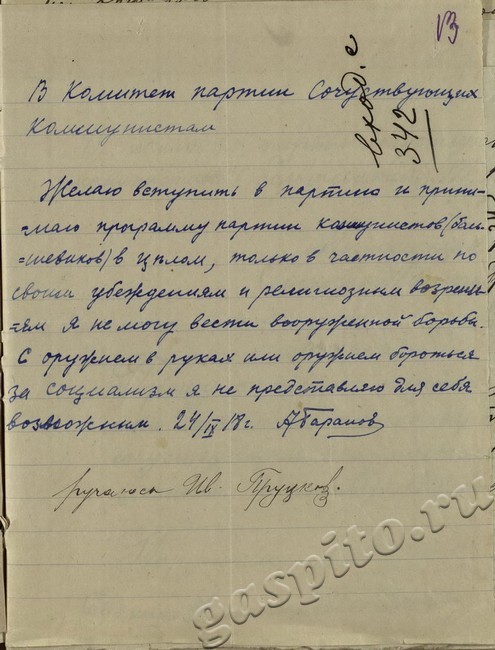 13
вход. с
342
В Комитет партии Сочувствующих
Коммунистам
Желаю вступить в партию и прини-
=маю программу партии комунистов (боль
=шевиков) в целом, только в частности по
своим убеждениям и религиозным воззрени-
=ям я не могу вести вооруженной борьбы.
С оружием в руках или оружием бороться
за социализм я не представляю для себя
возможным. 24/IX 18 г. А Баранов
ручаюсь Ив. Пруцков.
gaspito.ru